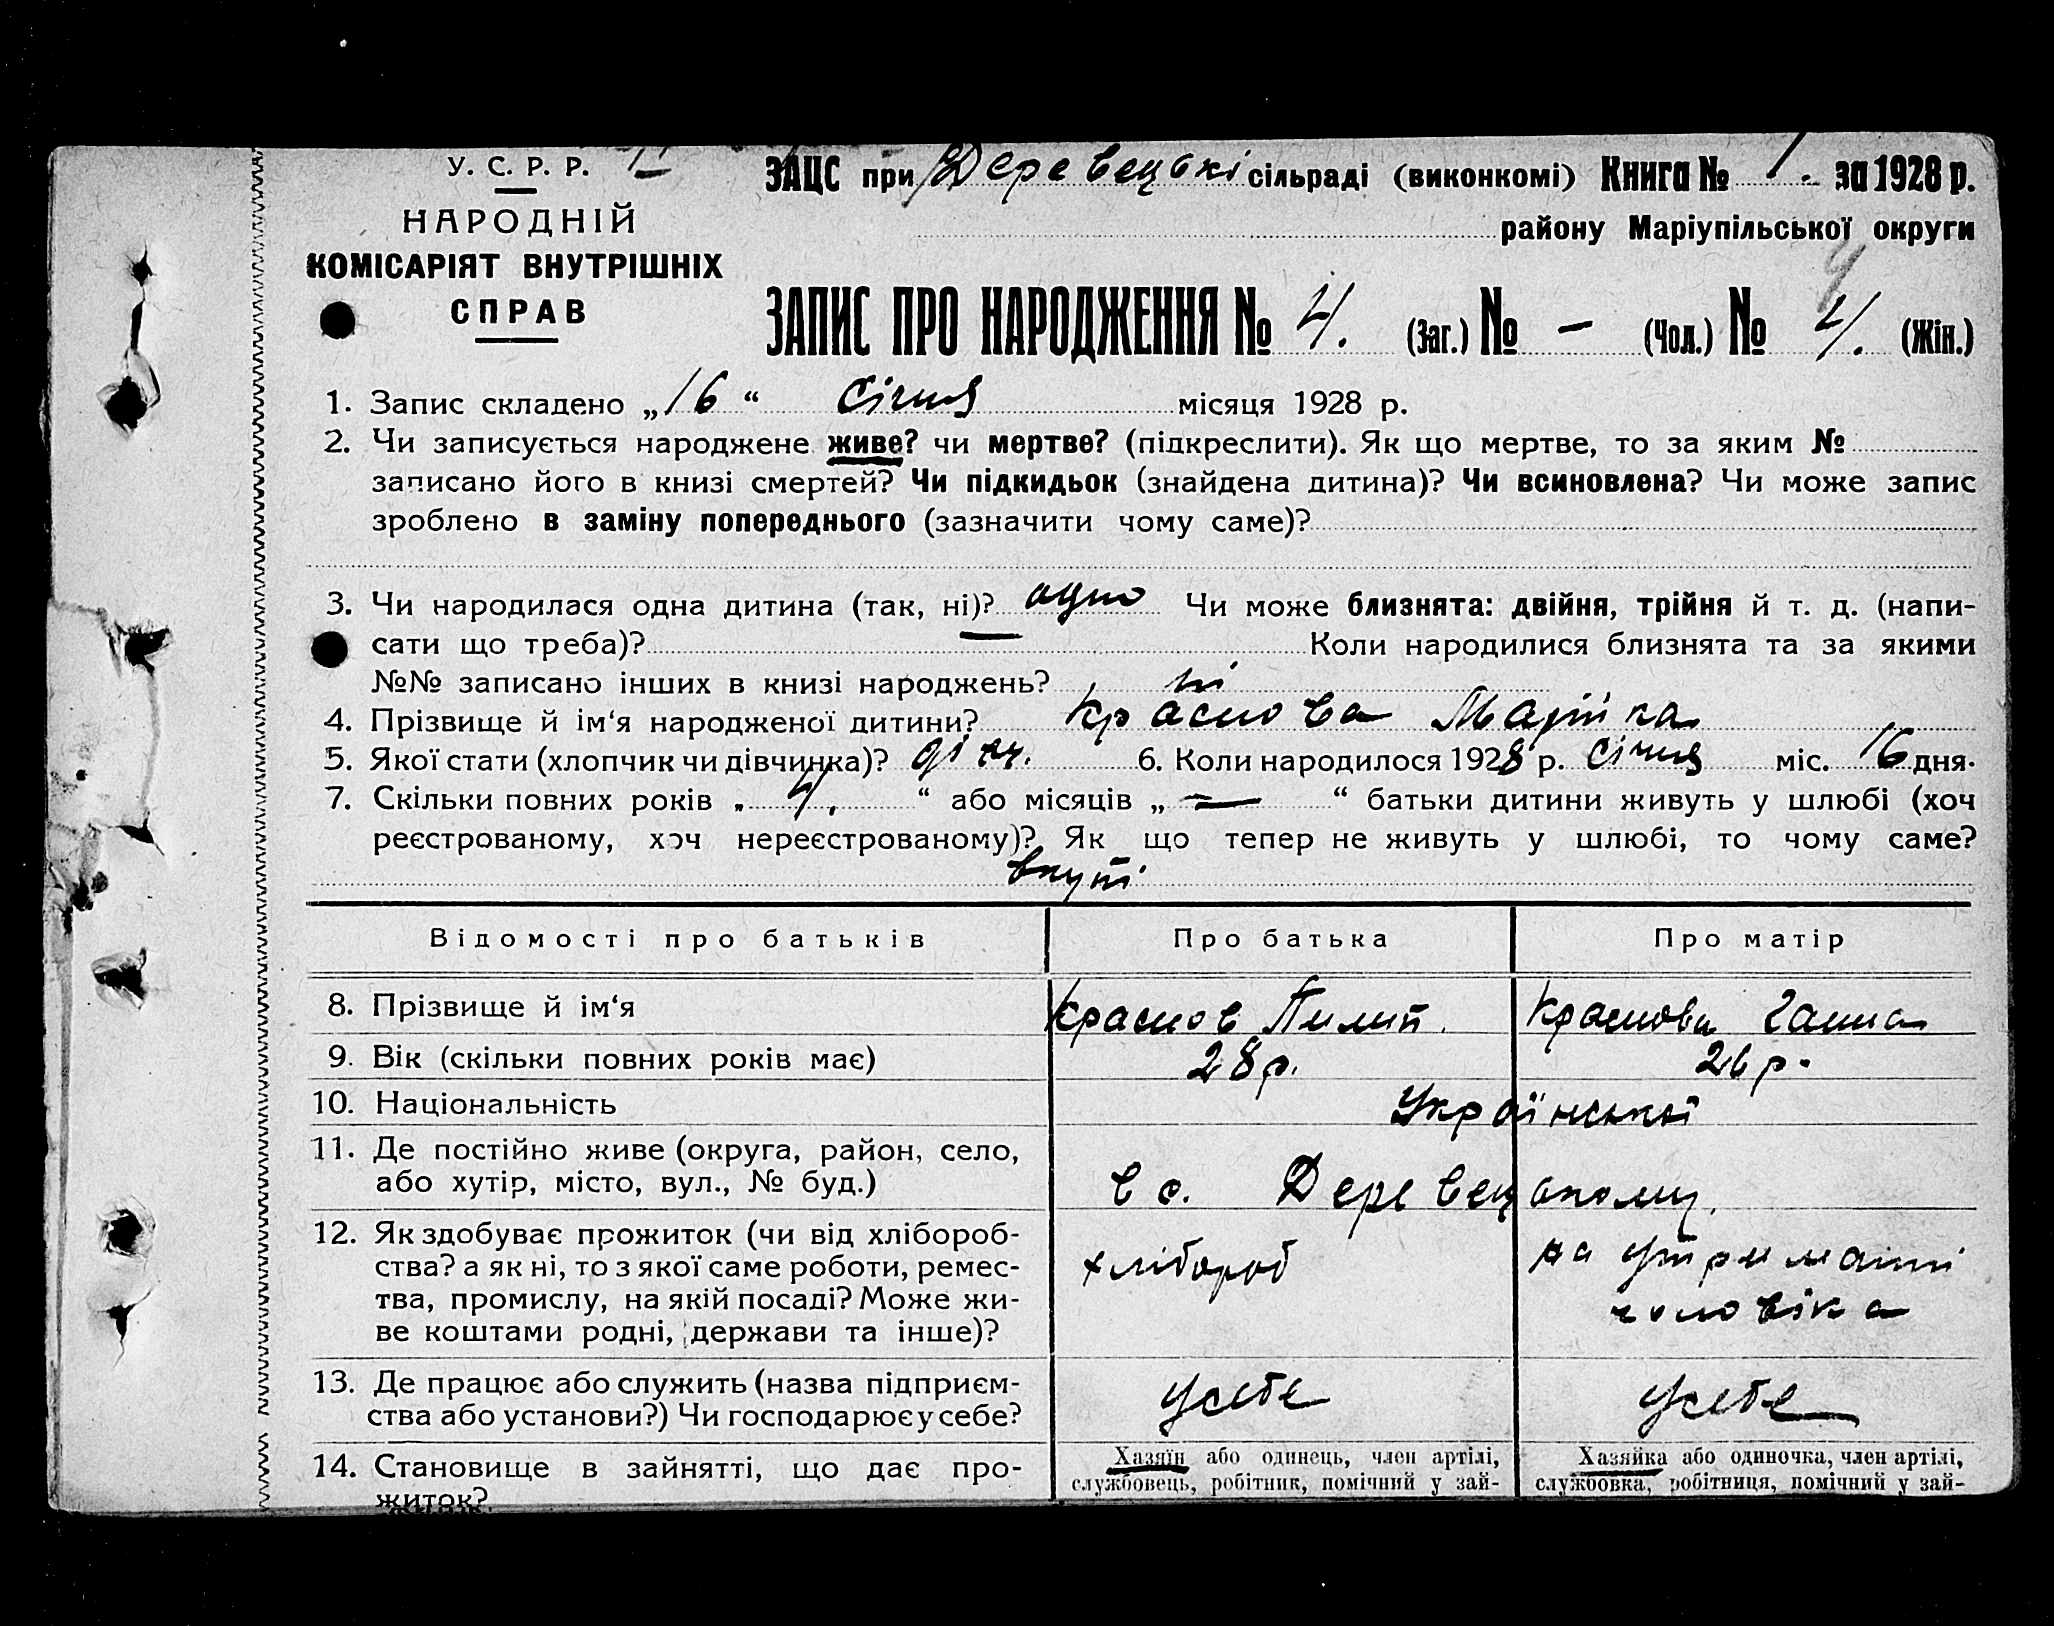 У. С. Р. Р.
НАРОДНІЙ
КОМІСАРІЯТ ВНУТРІШНІХ
СПРАВ
ЗАЦС при Деревецькі сільраді (виконкомі) Книга № 1. за 1928 р.
району Маріупільської округи
4
ЗАПИС ПРО НАРОДЖЕННЯ № 4. (Заг.) № – (Чол.) № 4. (Жін.)
1. Запис складено „16“ січня місяця 1928 р.
2. Чи записується народжене живе? чи мертве? (підкреслити). Як що мертве, то за яким №
записано його в книзі смертей? Чи підкидьок (знайдена дитина)? Чи всиновлена? Чи може запис
зроблено в заміну попереднього (зазначити чому саме)?
3. Чи народилася одна дитина (так, ні)? одно Чи може близнята: двійня, трійня й т. д. (напи-
сати що треба)? — Коли народилися близнята та за якими
№№ записано інших в книзі народжень? ні
4. Прізвище й ім‘я народженої дитини? Краснова Марійка
5. Якої стати (хлопчик чи дівчинка)? дівч. 6. Коли народилося 1928 р. січня міс. 16 дня.
7. Скільки повних років „ 4. “ або місяців „ — “ батьки дитини живуть у шлюбі (хоч
реєстрованому, хоч нереєстрованому)? Як що тепер не живуть у шлюбі, то чому саме?
Відомості про батьків Про батька Про матір
8. Прізвище й ім‘я Краснов Пилип. Краснова Ганна
9. Вік (скільки повних років має) 28 р. 26 р.
10. Національність Української
11. Де постійно живе (округа, район, село,
або хутір, місто, вул., № буд.) в с. Деревецькому.
12. Як здобуває прожиток (чи від хлібороб-
ства? а як ні, то з якої саме роботи, ремес- хлібороб на утриманні
тва, промислу, на якій посаді? Може жи- чоловіка
ве коштами родні, держави та інше)?
13. Де працює або служить (назва підприєм- усебе усебе
ства або установи?) Чи господарює у себе?
14. Становище в зайнятті, що дає про- Хазяїн або одинець, член артілі, Хазяйка або одиночка, член артілі,
житок? службовець, робітник, помічний у зай- службовка, робітниця, помічний у зай-